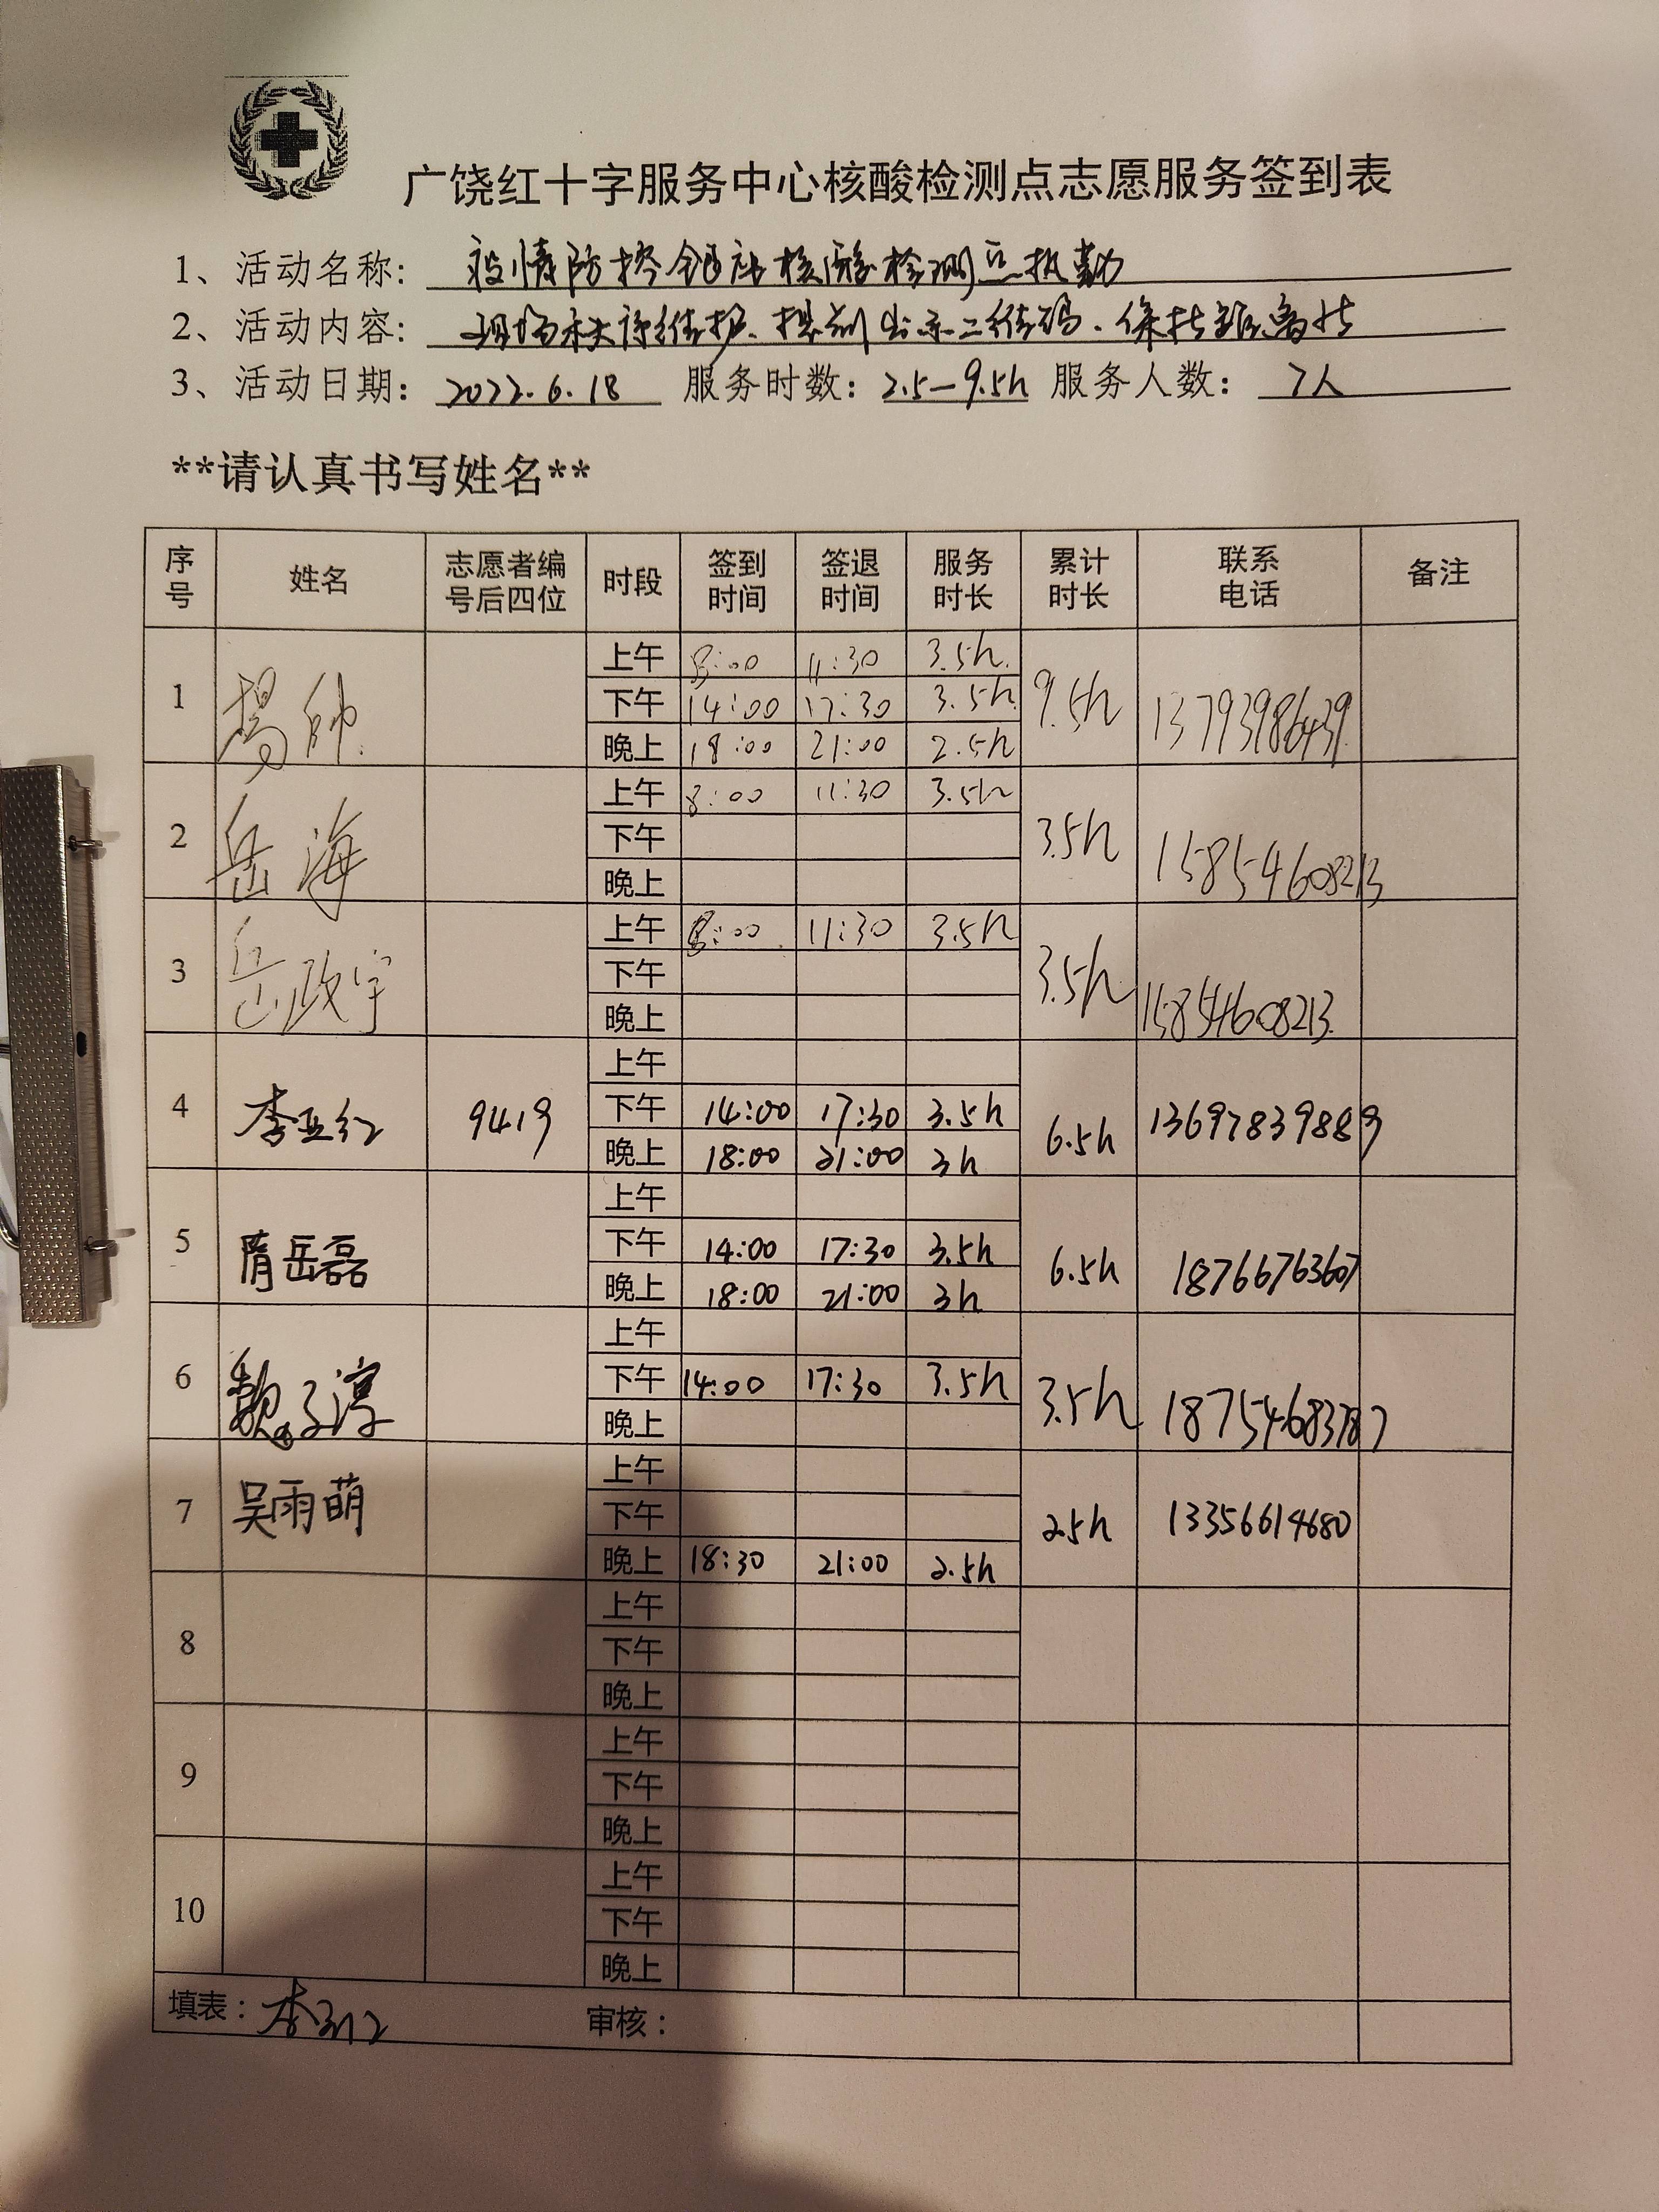 广饶红十字服务中心核酸检测点志愿服务签到表
1、活动名称: 疫情防控 核酸检测点执勤
2、活动内容: 现场秩序维护、提前出示二维码、保持距离
3、活动日期: 2022.6.18 服务时数: 2.5-9.5h 服务人数: 7人
**请认真书写姓名**
序号 姓名 志愿者编号后四位 时段 签到时间 签退时间 服务时长 累计时长 联系电话 备注
1 杨帅 上午 8:00 11:30 3.5h. 9.5h 13793986439
下午 14:00 17:30 3.5h
晚上 18:00 21:00 2.5h
2 岳海 上午 8:00 11:30 3.5h 3.5h 15854608213
下午
晚上
3 岳政宇 上午 8:00 11:30 3.5h 3.5h 15854608213
下午
晚上
4 李亚红 9419 上午 6.5h 13697839889
下午 14:00 17:30 3.5h
晚上 18:00 21:00 3h
5 隋岳磊 上午 6.5h 18766763607
下午 14:00 17:30 3.5h
晚上 18:00 21:00 3h
6 魏子淳 上午 3.5h 18754683787
下午 14:00 17:30 3.5h
晚上
7 吴雨萌 上午 2.5h 13356614680
下午
晚上 18:30 21:00 2.5h
8 上午
下午
晚上
9 上午
下午
晚上
10 上午
下午
晚上
填表: 李亚红 审核: